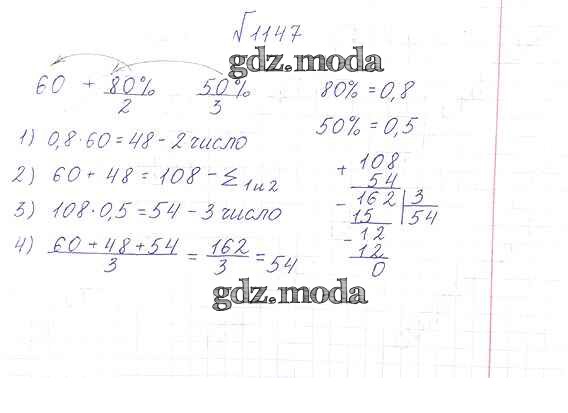 √1147
gdz.moda
60 + 80% 50%
2 3
80% = 0,8
50% = 0,5
1) 0,8·60=48 – 2 число
2) 60 + 48 = 108 – Σ1и2
3) 108·0,5=54 – 3 число
4) 60+48+54/3 = 162/3 = 54
+ 108
54
- 162 | 3
15 54
- 12
12
0
gdz.moda